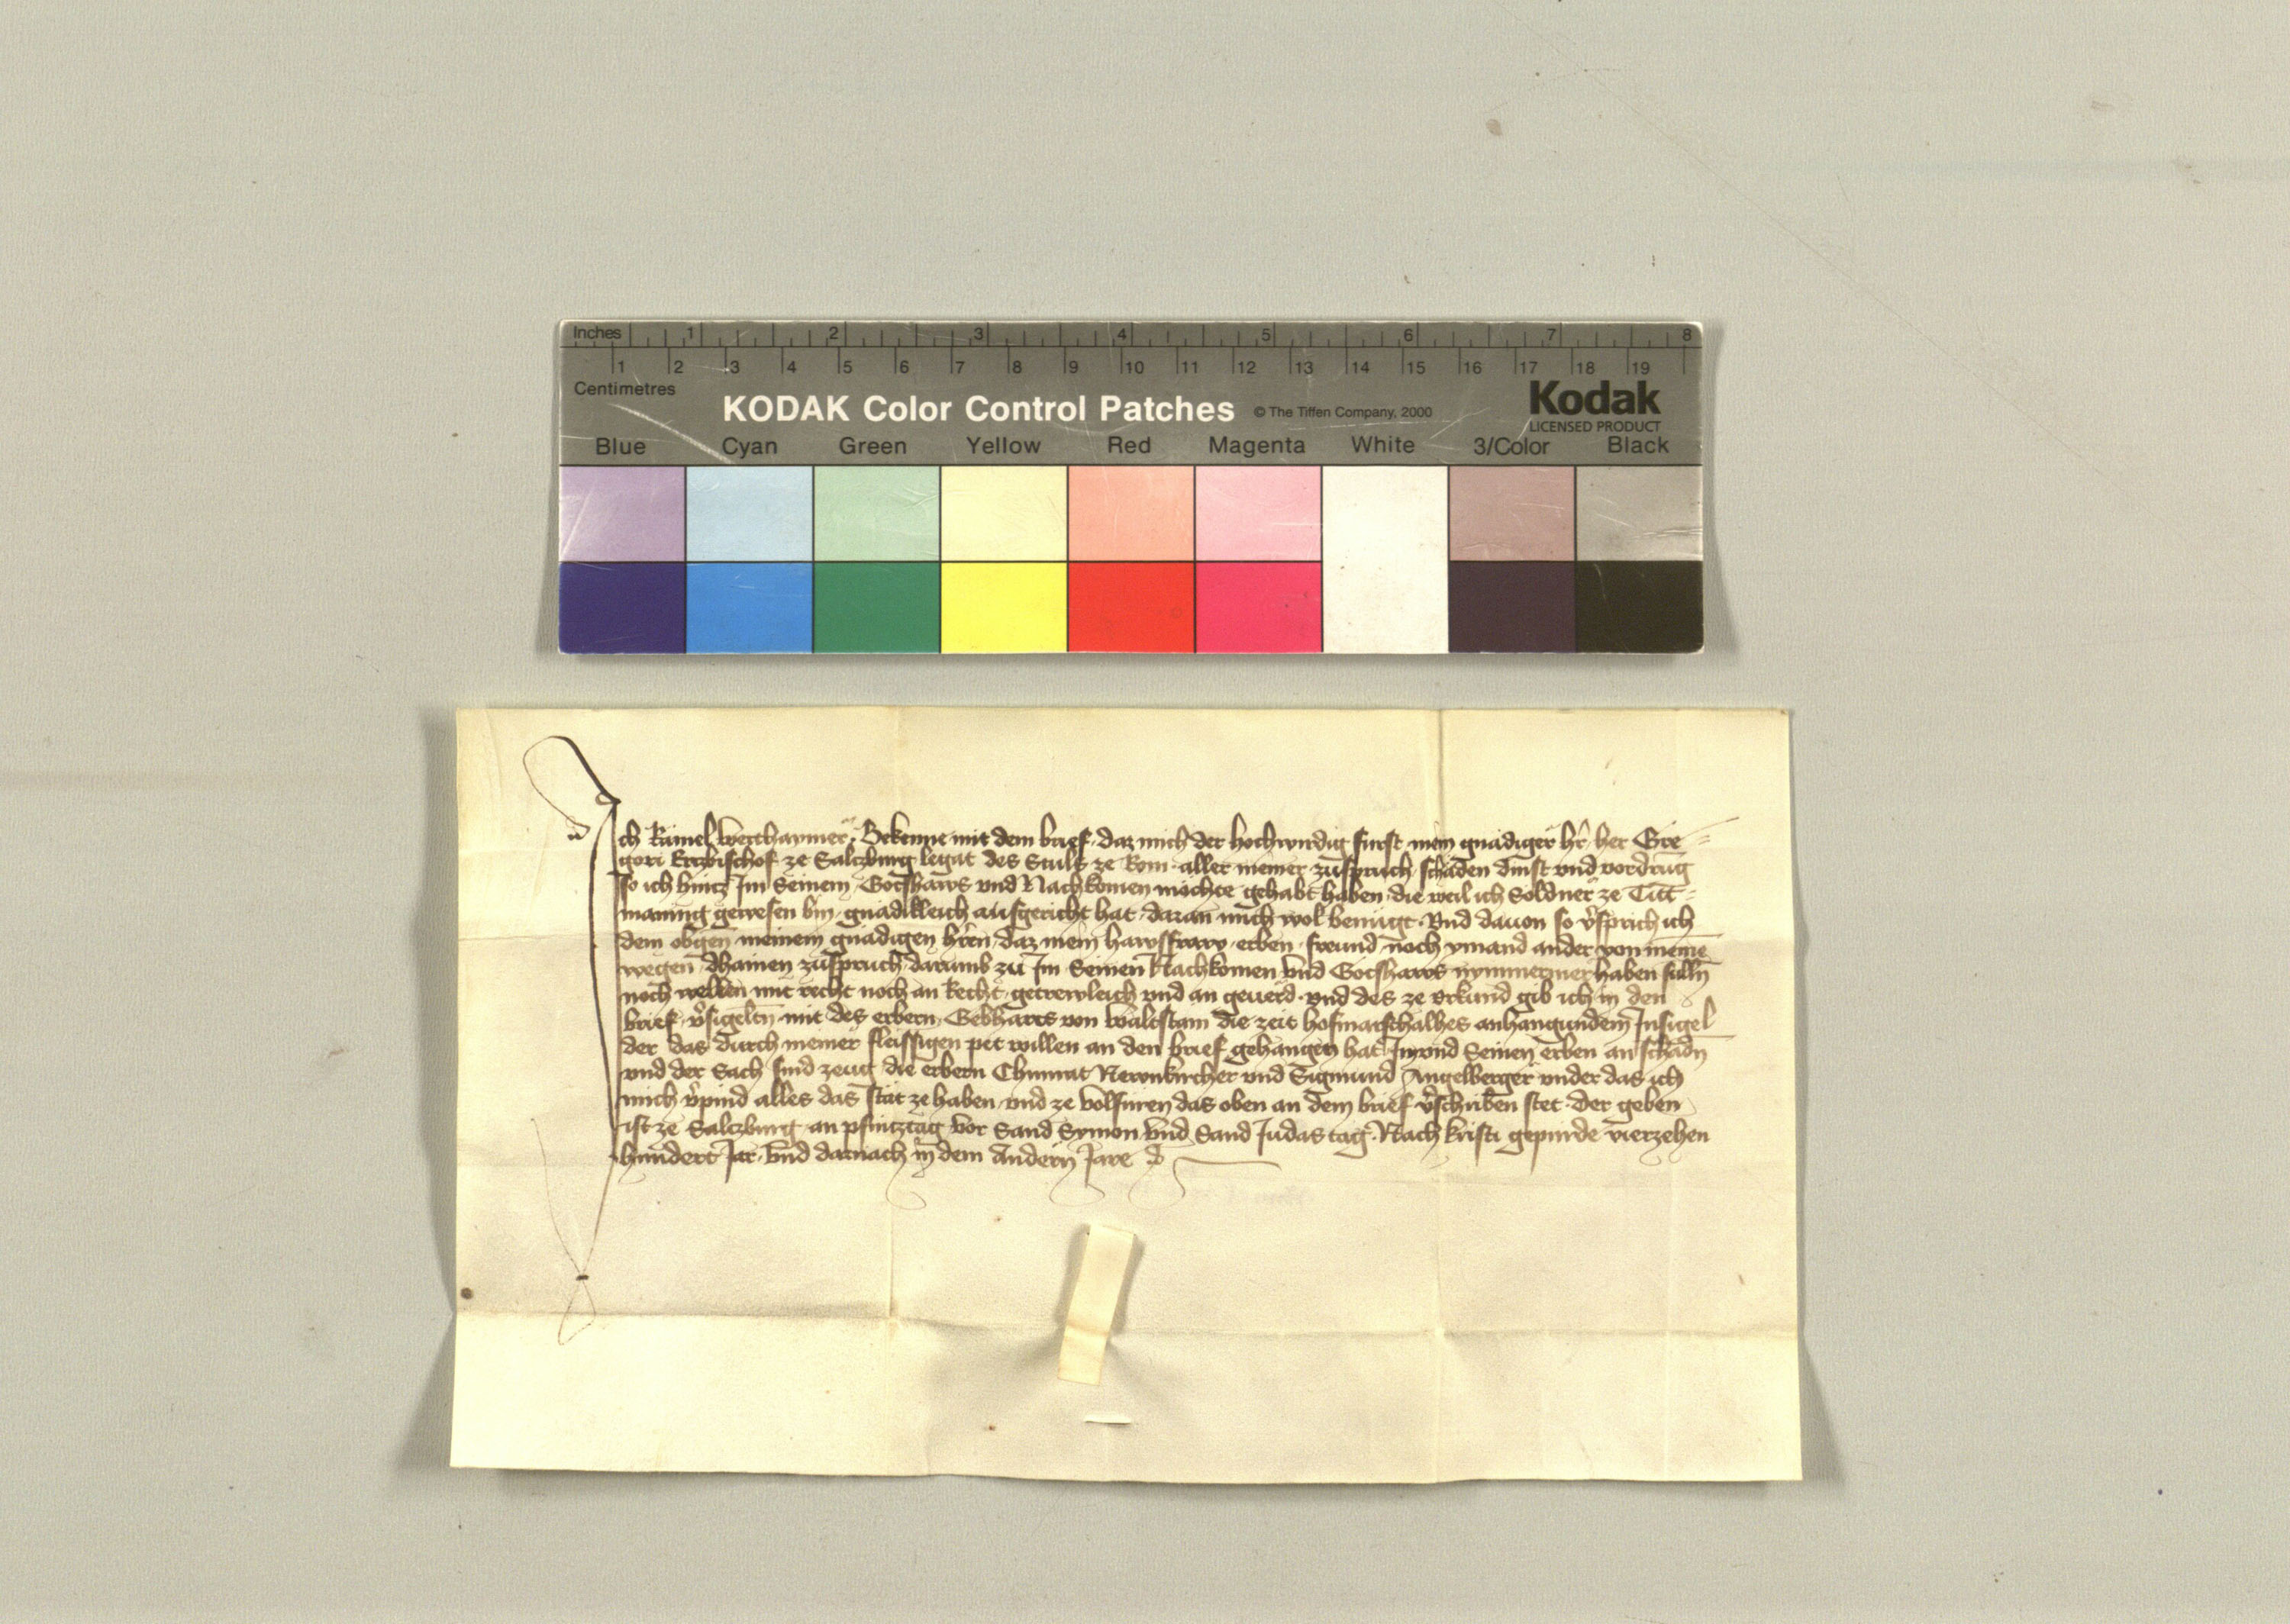 Inches 1 2 3 4 5 6 7 8
1 2 3 4 5 6 7 8 9 10 11 12 13 14 15 16 17 18 19
Centimetres
KODAK Color Control Patches © The Tiffen Company, 2000 Kodak
LICENSED PRODUCT
Blue Cyan Green Yellow Red Magenta White 3/Color Black
Ich Bekenne mit dem brief daz mich der hochwirdig furst mein gnädiger hr̄ her Gre-
gori Erczbischof ze Salczburg legat des Stuls ze Rom aller meiner zuspruch schäden dinst vnd vordrūg
so ich hincz Im Seinem Gotshaws vnd Nachkomen möchte gehabt haben die weil ich Soldner ze Titt-
maning gewesen bin gnädikleich ausgericht hat daran mich wol benügt Vnd dauon so v̄sprich ich
dem obgen̄ meinem gnädigen hr̄en daz mein hawsfraw erben freund noch ymand ander von meinē
wegen dhainen zuspruch darumb zu Im Seinen Nachkomen vnd Gotshaws nymmermer haben sulln̄
noch wellen mit recht noch an Recht getrewleich vnd an geuerd vnd des ze vrkund gib ich in den
brief v̄sigeltn̄ mit des erbern Gebharts von die zeit hofmarschalhes anhangundem Insigel
der das durch meiner fleissigen pet willen an den brief gehangen hat Im vnd Seinen erben an schadn̄
vnd der Sach sind zeug die erbern Chunrat Newnkircher vnd Sigmund Angelberger vnder das ich
mich v̄pind alles das stät ze haben vnd ze volfuren das oben an dem brief v̄schriben stet Der geben
ist ze Salczburg an pfincztag vor Sand Symon vnd Sand Judas tag Nach kristi gepurde vierzehen
hundert Jar vnd darnach in dem Andern Jare